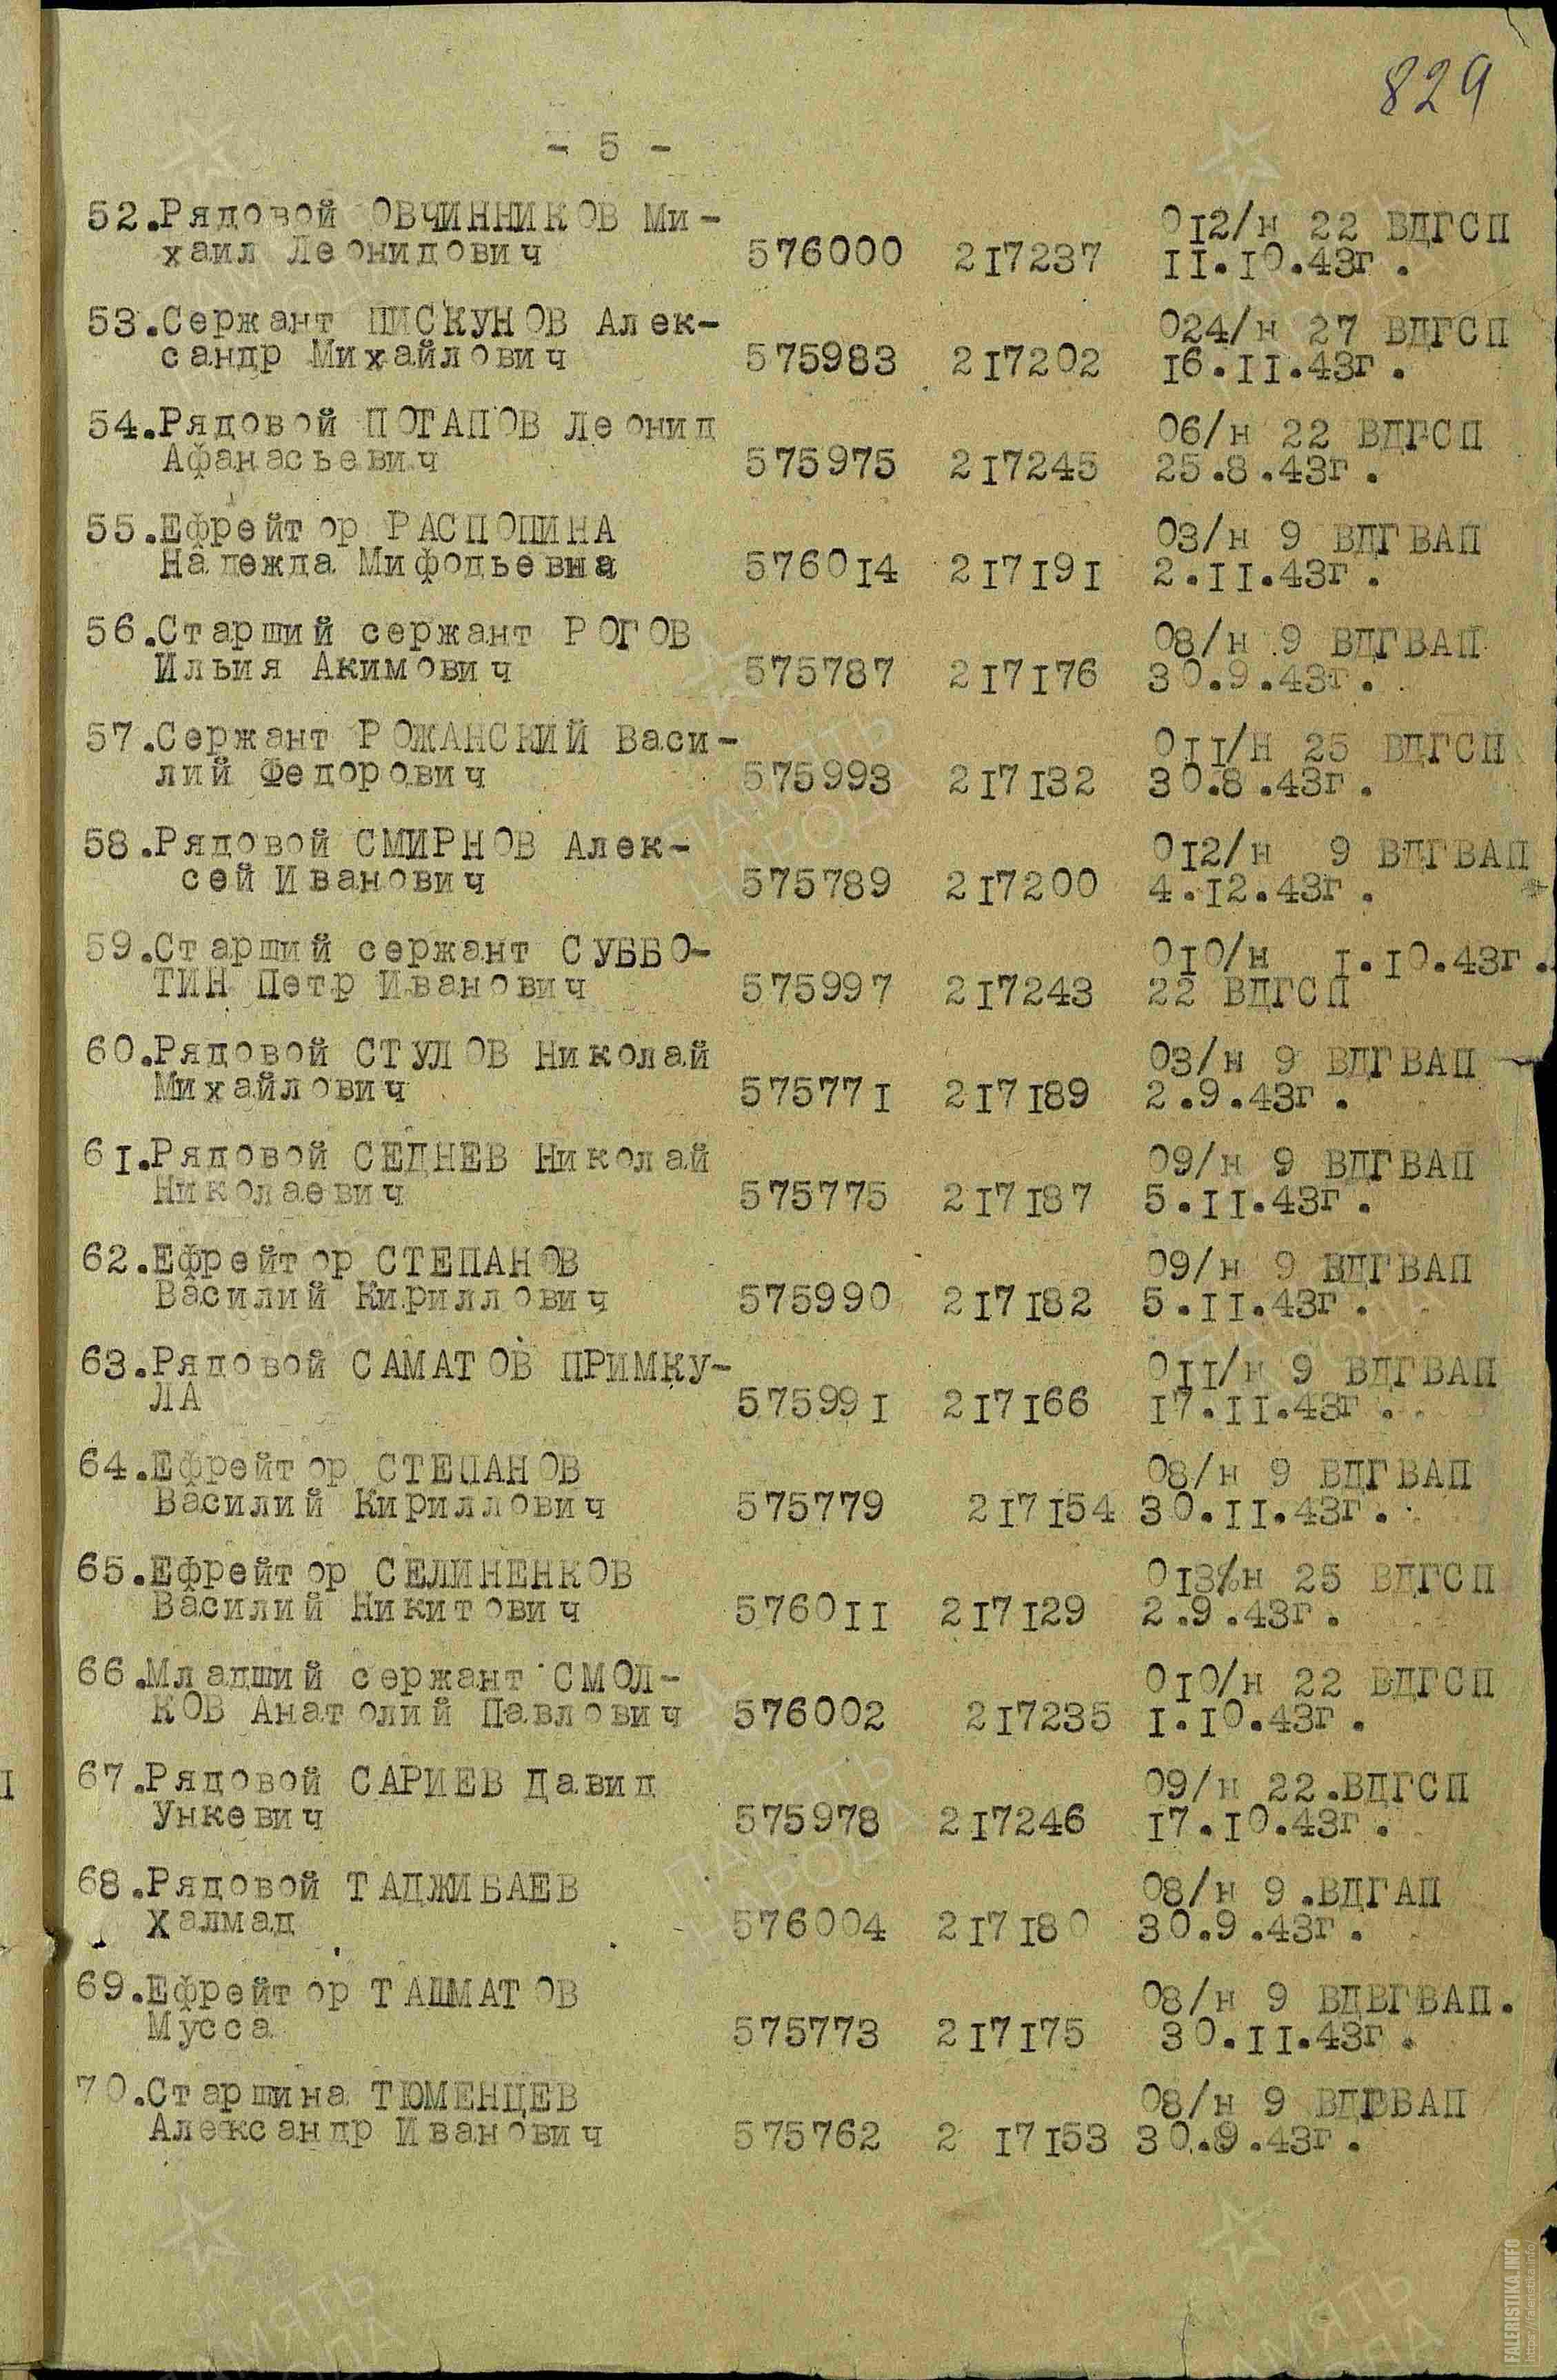 829
- 5 -
52.Рядовой ОВЧИННИКОВ Ми-
хаил Леонидович 576000 217237 012/н 22 ВДГСП
11.10.43г.
53.Сержант ПИСКУНОВ Алек-
сандр Михайлович 575983 217202 024/н 27 ВДГСП
16.11.43г.
54.Рядовой ПОТАПОВ Леонид
Афанасьевич 575975 217245 06/н 22 ВДГСП
25.8.43г.
55.Ефрейтор РАСПОПИНА
Надежда Мифодьевна 576014 217191 03/н 9 ВДГВАП
2.11.43г.
56.Старший сержант РОГОВ
Ильия Акимович 575787 217176 08/н 9 ВДГВАП
30.9.43г.
57.Сержант РОЖАНСКИЙ Васи-
лий Федорович 575993 217132 011/Н 25 ВДГСП
30.8.43г.
58.Рядовой СМИРНОВ Алек-
сей Иванович 575789 217200 012/н 9 ВДГВАП
4.12.43г.
59.Старший сержант СУББО-
ТИН Петр Иванович 575997 217243 010/н 1.10.43г.
22 ВДГСП
60.Рядовой СТУЛОВ Николай
Михайлович 575771 217189 03/н 9 ВДГВАП
2.9.43г.
61.Рядовой СЕДНЕВ Николай
Николаевич 575775 217187 09/н 9 ВДГВАП
5.11.43г.
62.Ефрейтор СТЕПАНОВ
Василий Кириллович 575990 217182 09/н 9 ВДГВАП
5.11.43г.
63.Рядовой САМАТОВ ПРИМКУ-
ЛА 575991 217166 011/н 9 ВДГВАП
17.11.43г.
64.Ефрейтор СТЕПАНОВ
Василий Кириллович 575779 217154 08/н 9 ВДГВАП
30.11.43г.
65.Ефрейтор СЕЛИНЕНКОВ
Василий Никитович 576011 217129 013%н 25 ВДГСП
2.9.43г.
66.Младший сержант СМОЛ-
КОВ Анатолий Павлович 576002 217235 010/н 22 ВДГСП
1.10.43г.
67.Рядовой САРИЕВ Давид
Ункевич 575978 217246 09/н 22.ВДГСП
17.10.43г.
68.Рядовой ТАДЖИБАЕВ
Халмад 576004 217180 08/н 9.ВДГАП
30.9.43г.
69.Ефрейтор ТАШМАТОВ
Мусса 575773 217175 08/н 9 ВДВГВАП.
30.11.43г.
70.Старшина ТЮМЕНЦЕВ
Александр Иванович 575762 2 17153 08/н 9 ВДГВАП
30.9.43г.
ПАМЯТЬ
НАРОДА
FALERISTIKA.INFO
https://faleristika.info/